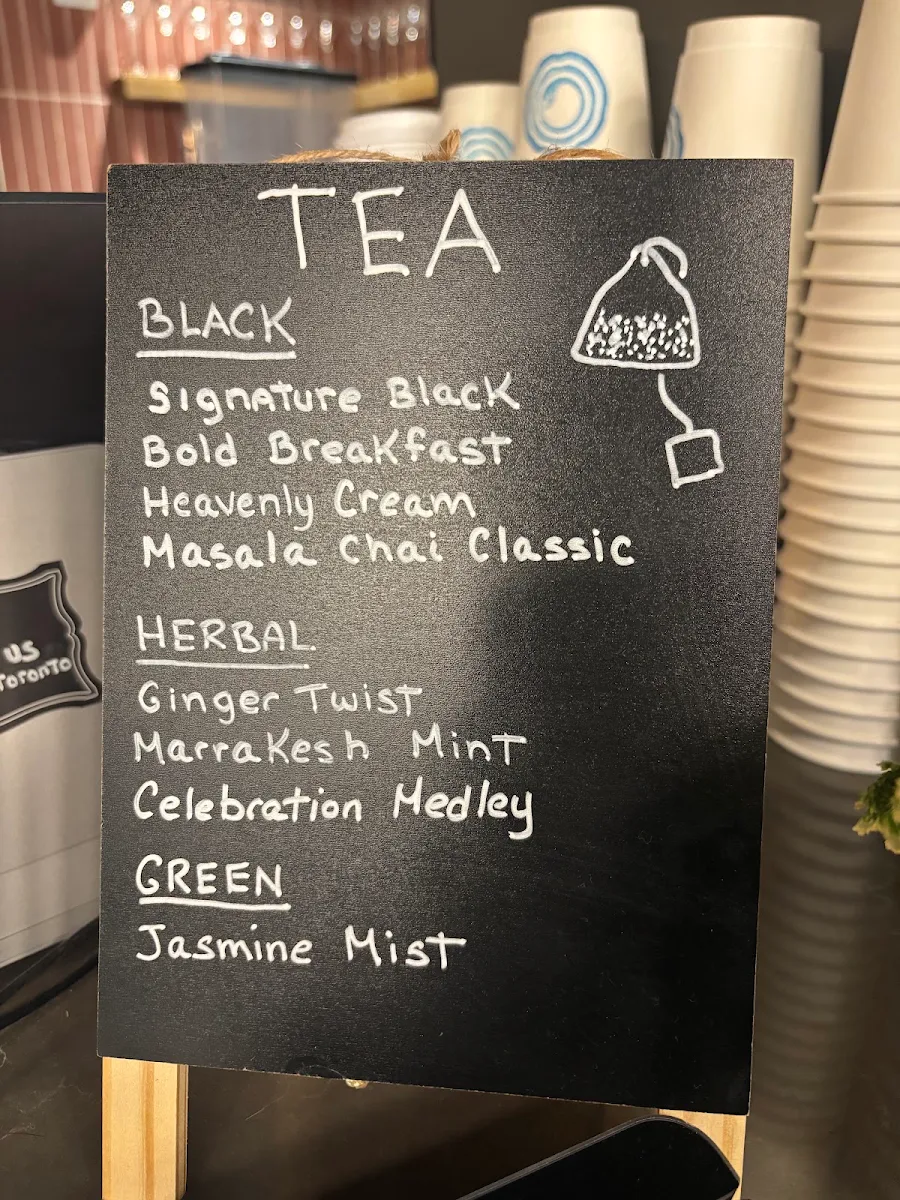 TEA
BLACK
Signature Black
Bold Breakfast
Heavenly Cream
Masala Chai Classic
HERBAL
Ginger Twist
Marrakesh Mint
Celebration Medley
GREEN
Jasmine Mist
US
TORONTO